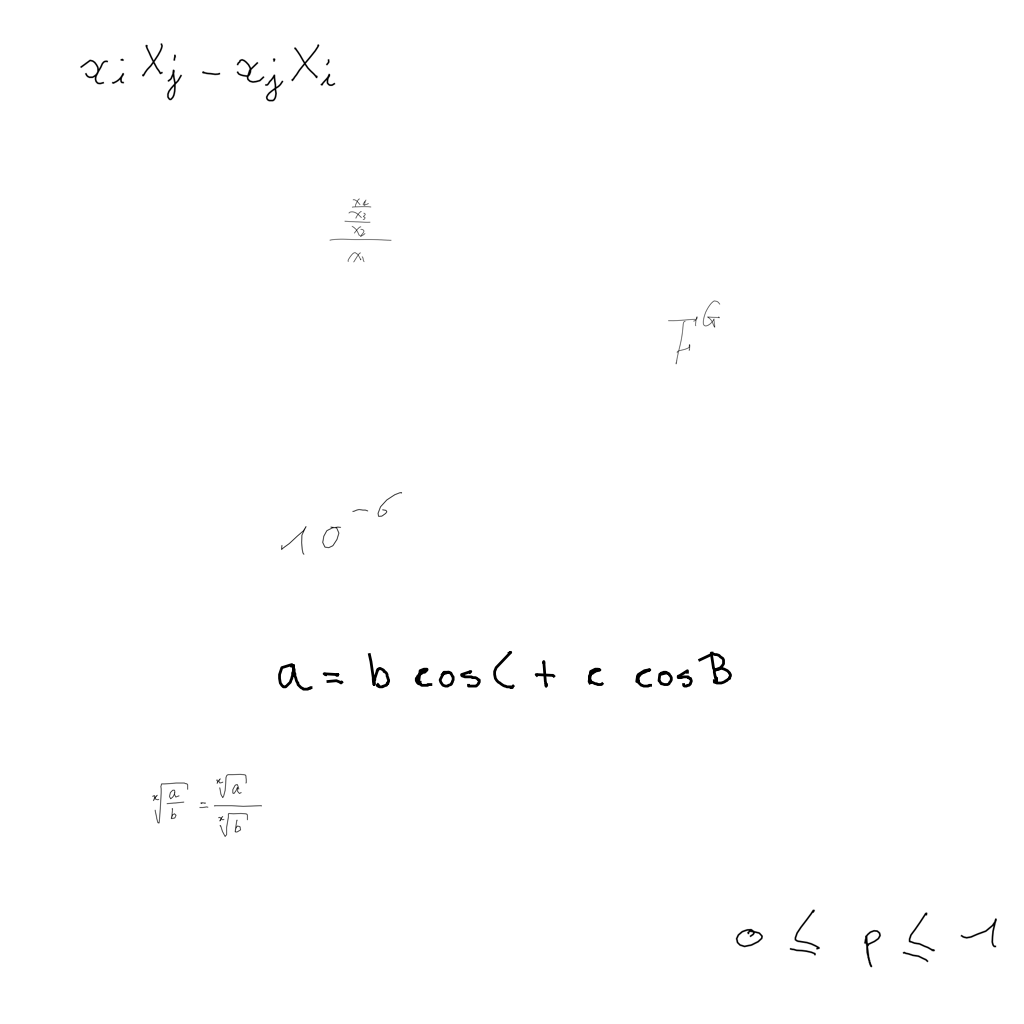 x_i X_j - x_j X_i
\frac{\frac{\frac{x_4}{x_3}}{x_2}}{x_1}
F^G
10^{-6}
a = b cos C + c cos B
\sqrt[x]{\frac{a}{b}} = \frac{\sqrt[x]{a}}{\sqrt[x]{b}}
0 ≤ p ≤ 1